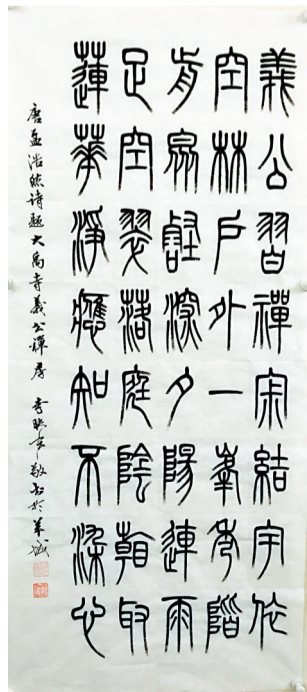 義公習禪寂結宇依
空林戶外一峯秀階
前衆壑深夕陽連雨
足空翠落庭陰看取
蓮華淨應知不染心
唐孟浩然诗题大禹寺義公禪房 敬书於羊城